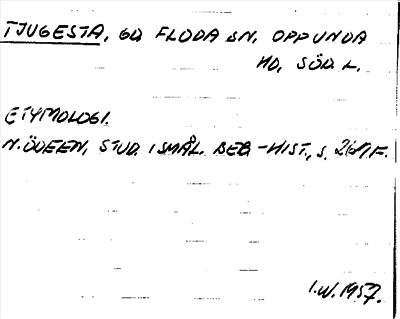 TJUGESTA, GD FLODA SN, OPPUNDA
HD, SÖD. L.
ETYMOLOGI.
N. ÖDEEN, STUD. I SMÅL. BEB-HIST., S. 261 F.
I.W. 1957.